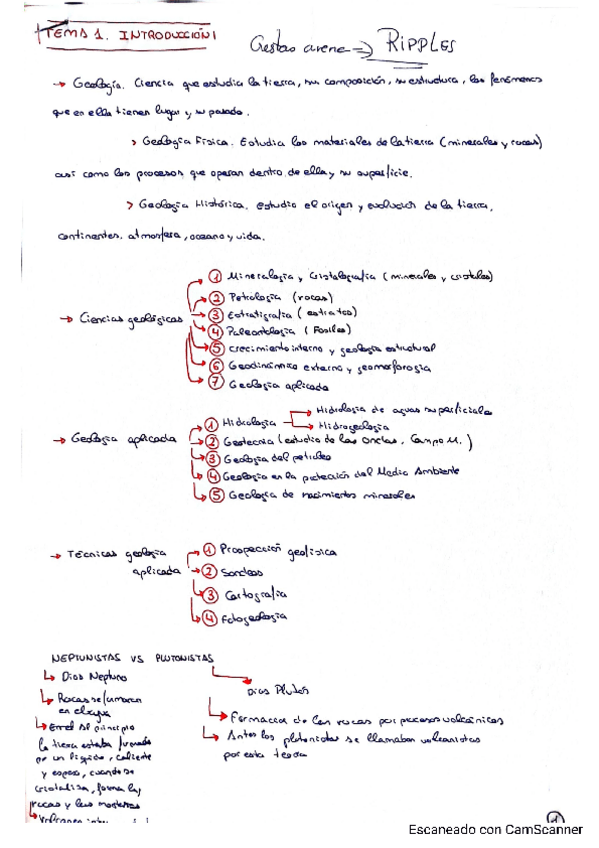 TEMA 1. INTRODUCCIÓN
Crestas arena => RIPPLES
→ Geología. Ciencia que estudia la tierra, su composición, su estructura, los fenómenos
que en ella tienen lugar y su pasado.
> Geología Física. Estudia los materiales de la tierra (minerales y rocas)
así como los procesos que operan dentro de ella y su superficie.
> Geología Histórica. estudia el origen y evolución de la tierra,
continentes, atmosfera, oceano y vida.
→ Ciencias geológicas
① Mineralogía y Cristalografía (minerales y cristales)
② Petrología (rocas)
③ Estratigrafía (estratos)
④ Paleontología (Fósiles)
⑤ crecimiento interno y geología estructural
⑥ Geodinámica externa y geomorforogia
⑦ Geología aplicada
→ Geología aplicada
① Hidrología
Hidrología de aguas superficiales
Hidrogeología
② Geotecnia (estudio de las ondas, Campo M.)
③ Geología del petróleo
④ Geología en la protección del Medio Ambiente
⑤ Geología de yacimientos minerales
→ Técnicas geología
aplicada
① Prospección geofísica
② Sondeos
③ Cartografía
④ Fotogeología
NEPTUNISTAS VS PLUTONISTAS
Dios Neptuno
Rocas se formaron
en el agua
En el principio
la tierra estaba formada
por un líquido, caliente
y espeso, cuando se
cristaliza, forma las
rocas y las montañas
Volcanes
Dios Plutos
Formación de las rocas por procesos volcánicos
Antes los plutonistas se llamaban vulcanistas
por esta teoría
1
Escaneado con CamScanner